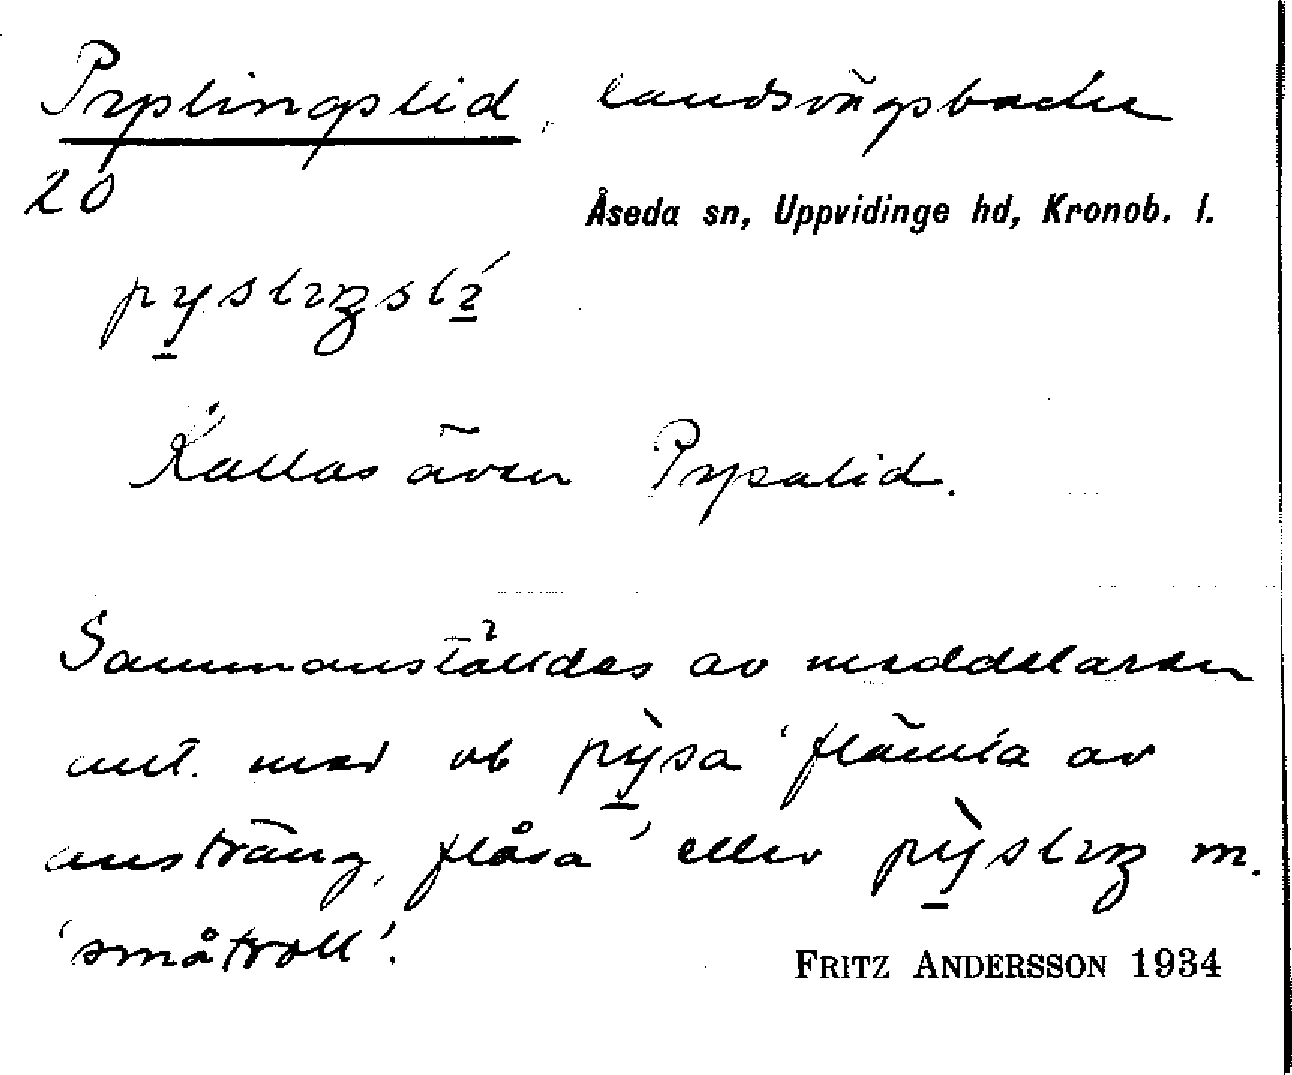 Pyslingslid, landsvägsbacke
20
Åseda sn, Uppvidinge hd, Kronob. l.
Kallas även Pysalid.
Sammanställdes av meddelaren
ant. med vb pỳsa 'flämta av
ansträng, flåsa' eller m.
'småtroll'.
FRITZ ANDERSSON 1934